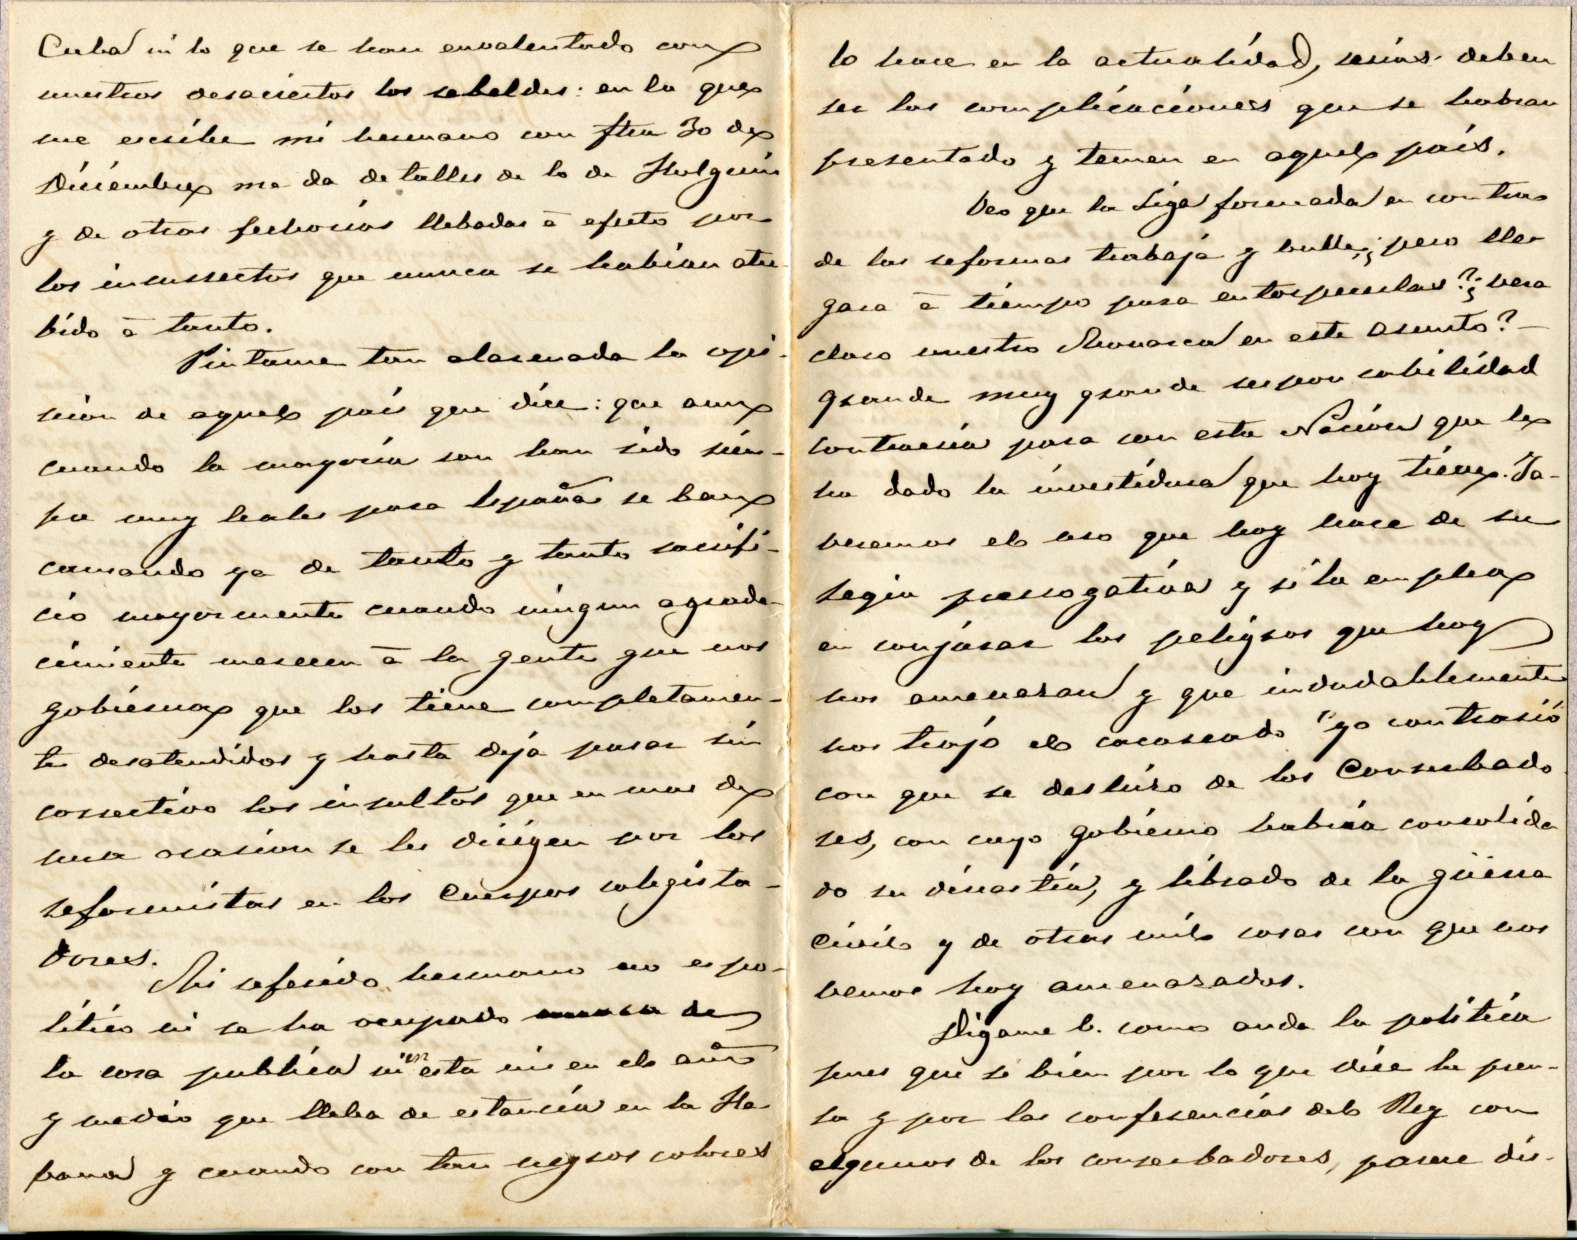 Cuba ni lo que se han envalentado con
nuestros desaciertos los rebeldes: en la que
me escribe mi hermano con fha 30 de
Diciembre me da detalles de lo de Holguin
y de otras fechorias llebadas á efecto por
los insurrectos que nunca se habian atre-
bido á tanto.
Pintame tan alarmada la opi-
nion de aquel pais que dice: que aun
cuando la mayoria son han sido siem-
pre muy leales para España se ban
cansando ya de tanto y tanto sacrifi-
cio mayormente cuando ningun agrade-
cimiento merecen á la gente que nos
gobierna que los tiene completamen-
te desatendidos y hasta deja pasar sin
correctivo los insultos que en mas de
una ocasion se les dirigen por los
reformistas en los Cuerpos colegisla-
dores.
Mi referido hermano no es po-
litico ni se ha ocupado nunca de
la cosa publica ni en esta ni en el año
y medio que lleba de estancia en la Ha-
bana y cuando con tan negros colores
lo hace en la actualidad, serias deben
ser las complicaciones que se habran
presentado y temen en aquel país.
Veo que la Liga formada en contra
de las reformas trabaja y bulle; ¿pero lle-
gara á tiempo para entorpecerlas? ¿vera
claro nuestro Monarca en este asunto?—
grande muy grande responsabilidad
contraeria para con esta Nación que le
ha dado la investidura que hoy tiene. Ya
veremos el uso que hoy hace de su
regia prerrogativa y si la emplea
en conjurar los peligros que hoy
nos amenazan y que indudablemente
nos trajo el cacareado "yo contrario"
con que se deshizo de los Conserbado
res, con cuyo gobierno habria consolida
do su dinastia, y librado de la güerra
civil y de otras mil cosas con que nos
vemos hoy amenazados.
Digame V. como anda la politica
pues que si bien por lo que dice la pren-
sa y por las conferencias del Rey con
algunos de los conserbadores, parece dis-